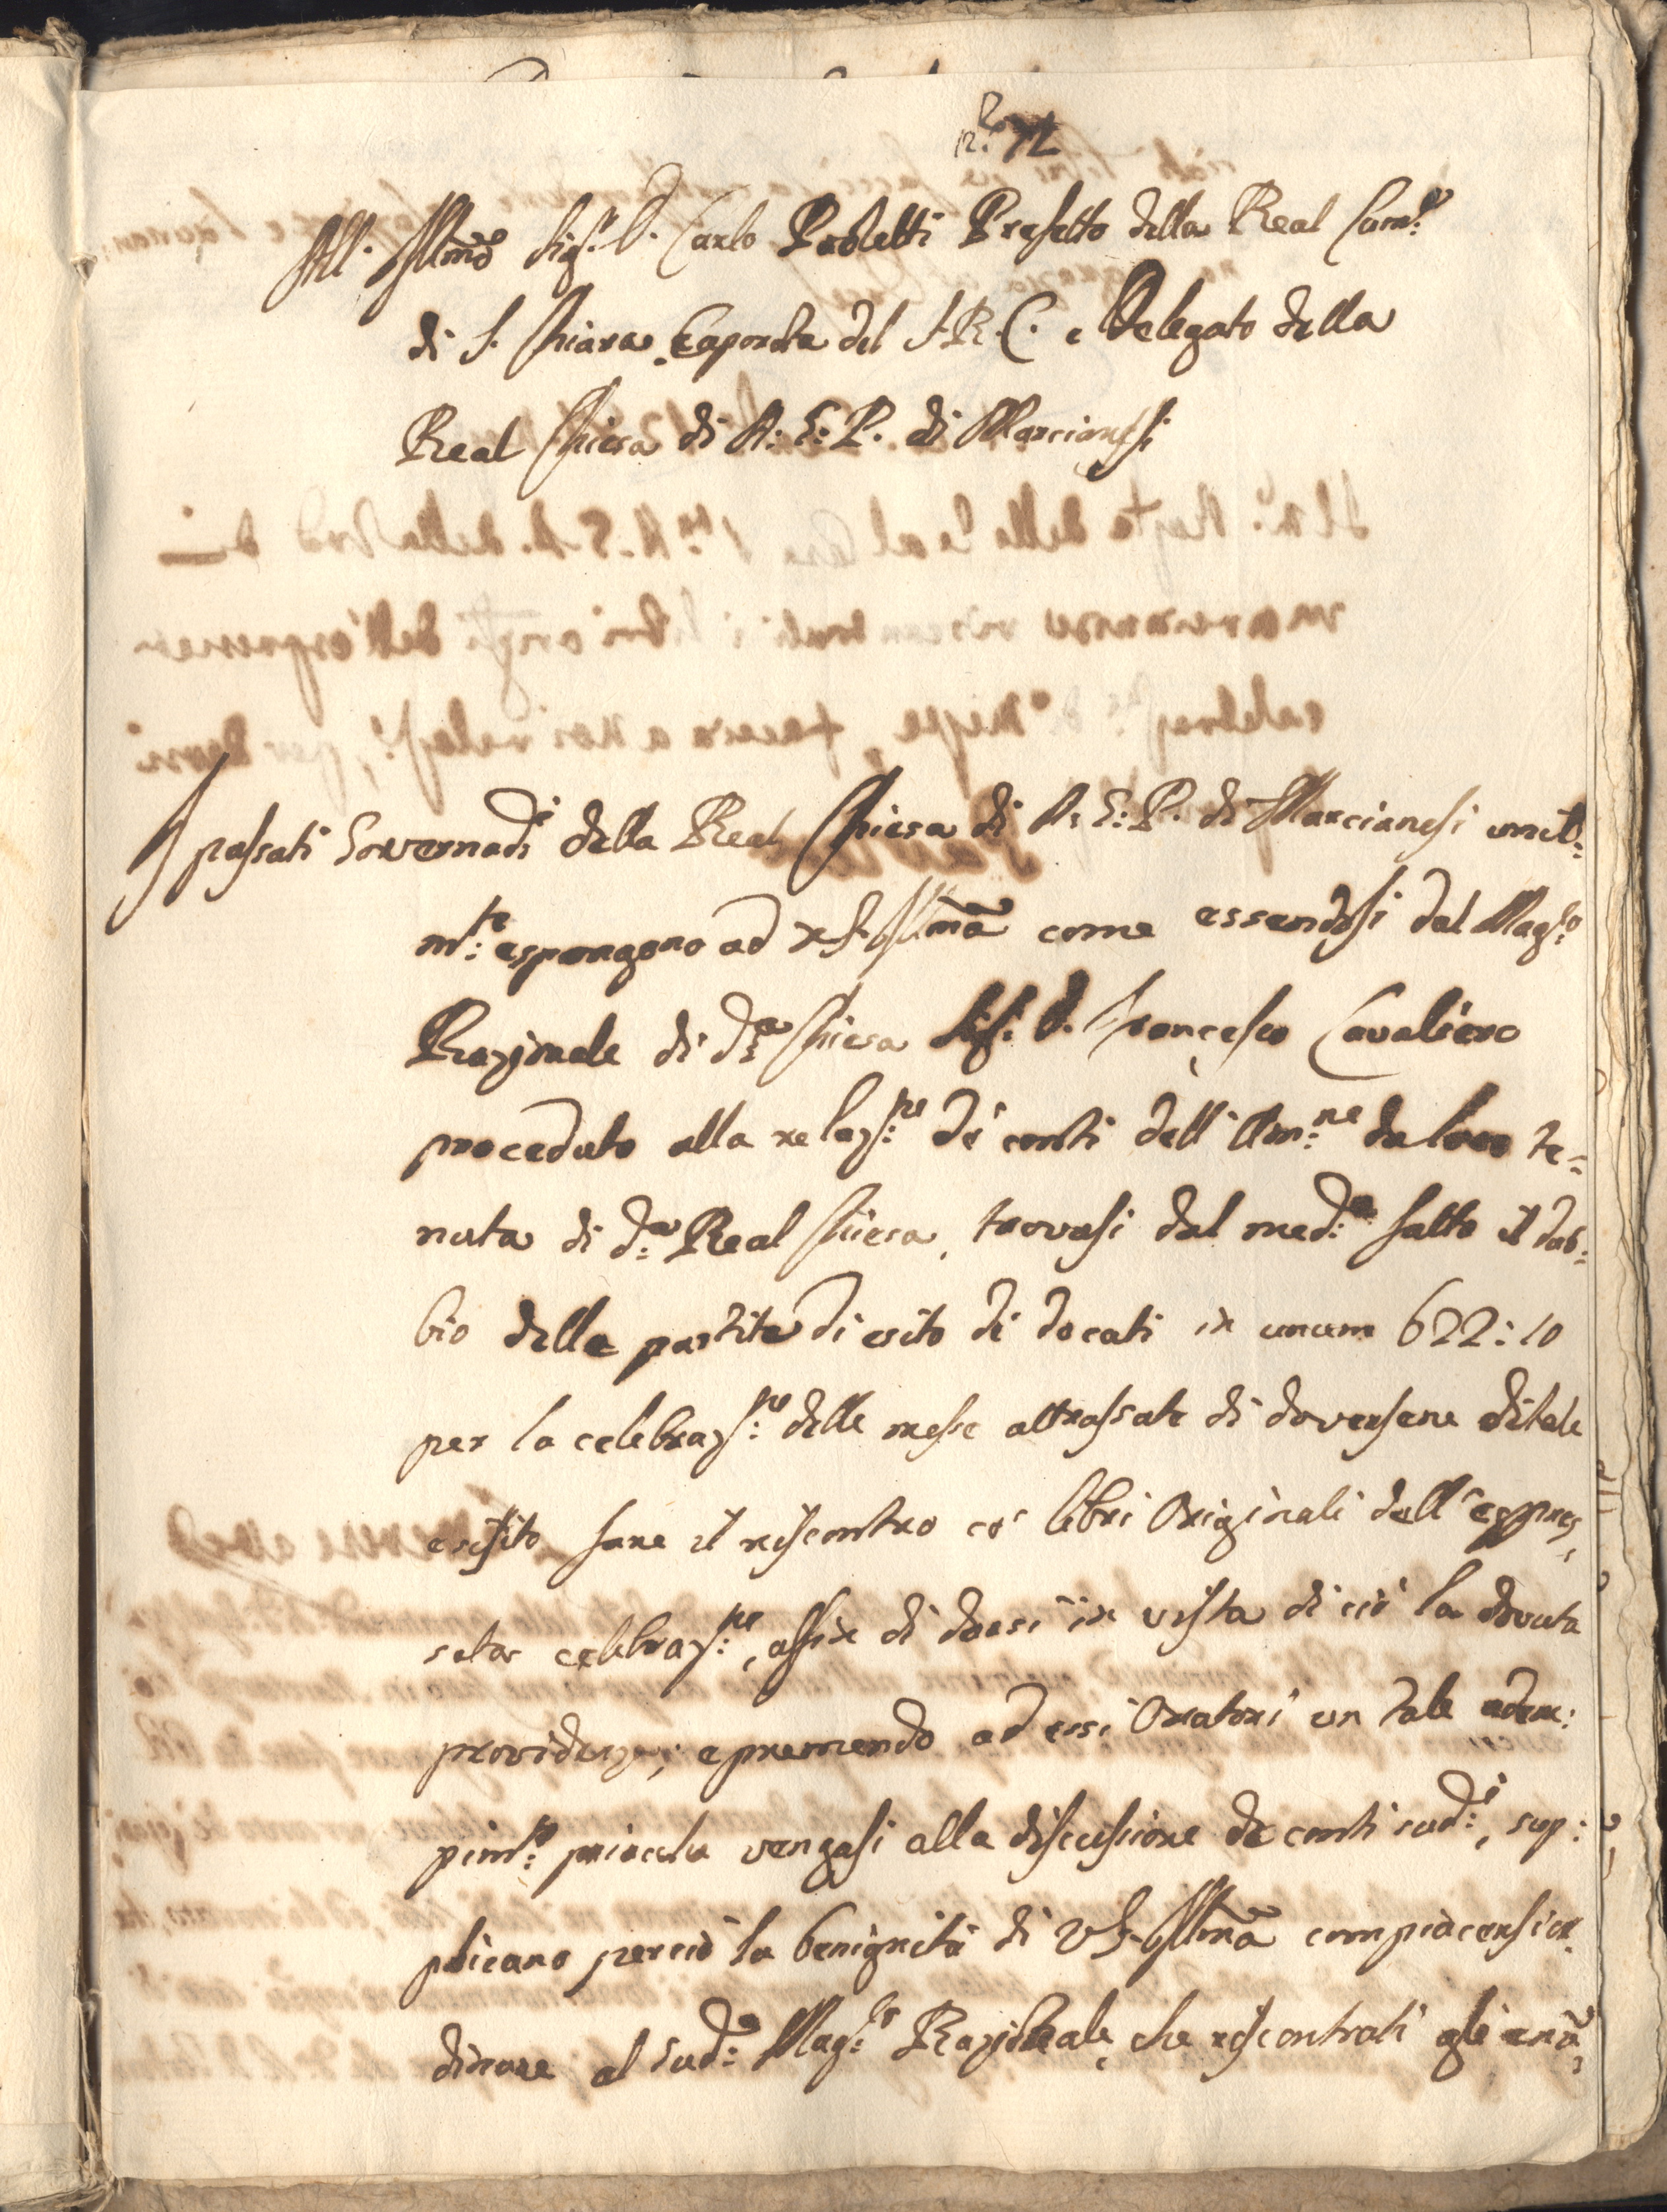 All. Ill.mo Sig.r D. Carlo Paoletti Prefetto della Real Cam.a
di S. Chiara, Caporota del S.R.C. e Delegato della
Real Chiesa di A: G: P. di Marcianesi
I passati Governad.i della Real Chiesa di A: G: P. di Marcianesi umil:
m:te espongono ad V.S. Ill.ma come essendosi dal Mag.co
Razionale di d:a Chiesa Sig. D. Francesco Cavaliero
proceduto alla relaz:ne de' conti dell' Am:ne da loro te=
nuta di d:a Real Chiesa, trovasi dal med:o fatto il dub:
bio delle partite di esito di docati in unum 622:10
per la celebraz:ne delle messe attrassate di doversene di tale
esito fare il riscontro co' libri Originali dell' espres,
sata celebraz:ne, affin di darsi in vista di ciò la dovuta
providenza; e premendo ad essi Oratori un tale adem:
pim:to priacchè vengasi alla discussione de conti sud:i, sup:
plicano perciò la benignità di V.S. Ill.ma compiacersi or,
dinare al sud:o Mag:co Razionale, che riscontrati gli